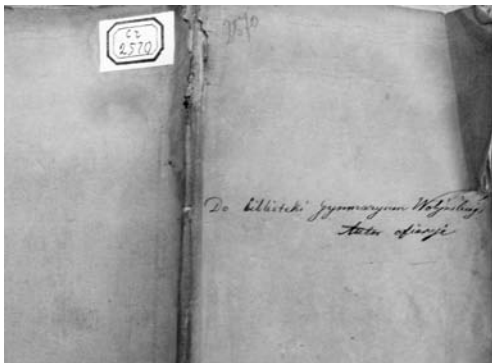 Cz
2570
2570
Do biblioteki Gymnazyum Wołyńskiego
Autor ofiaruje